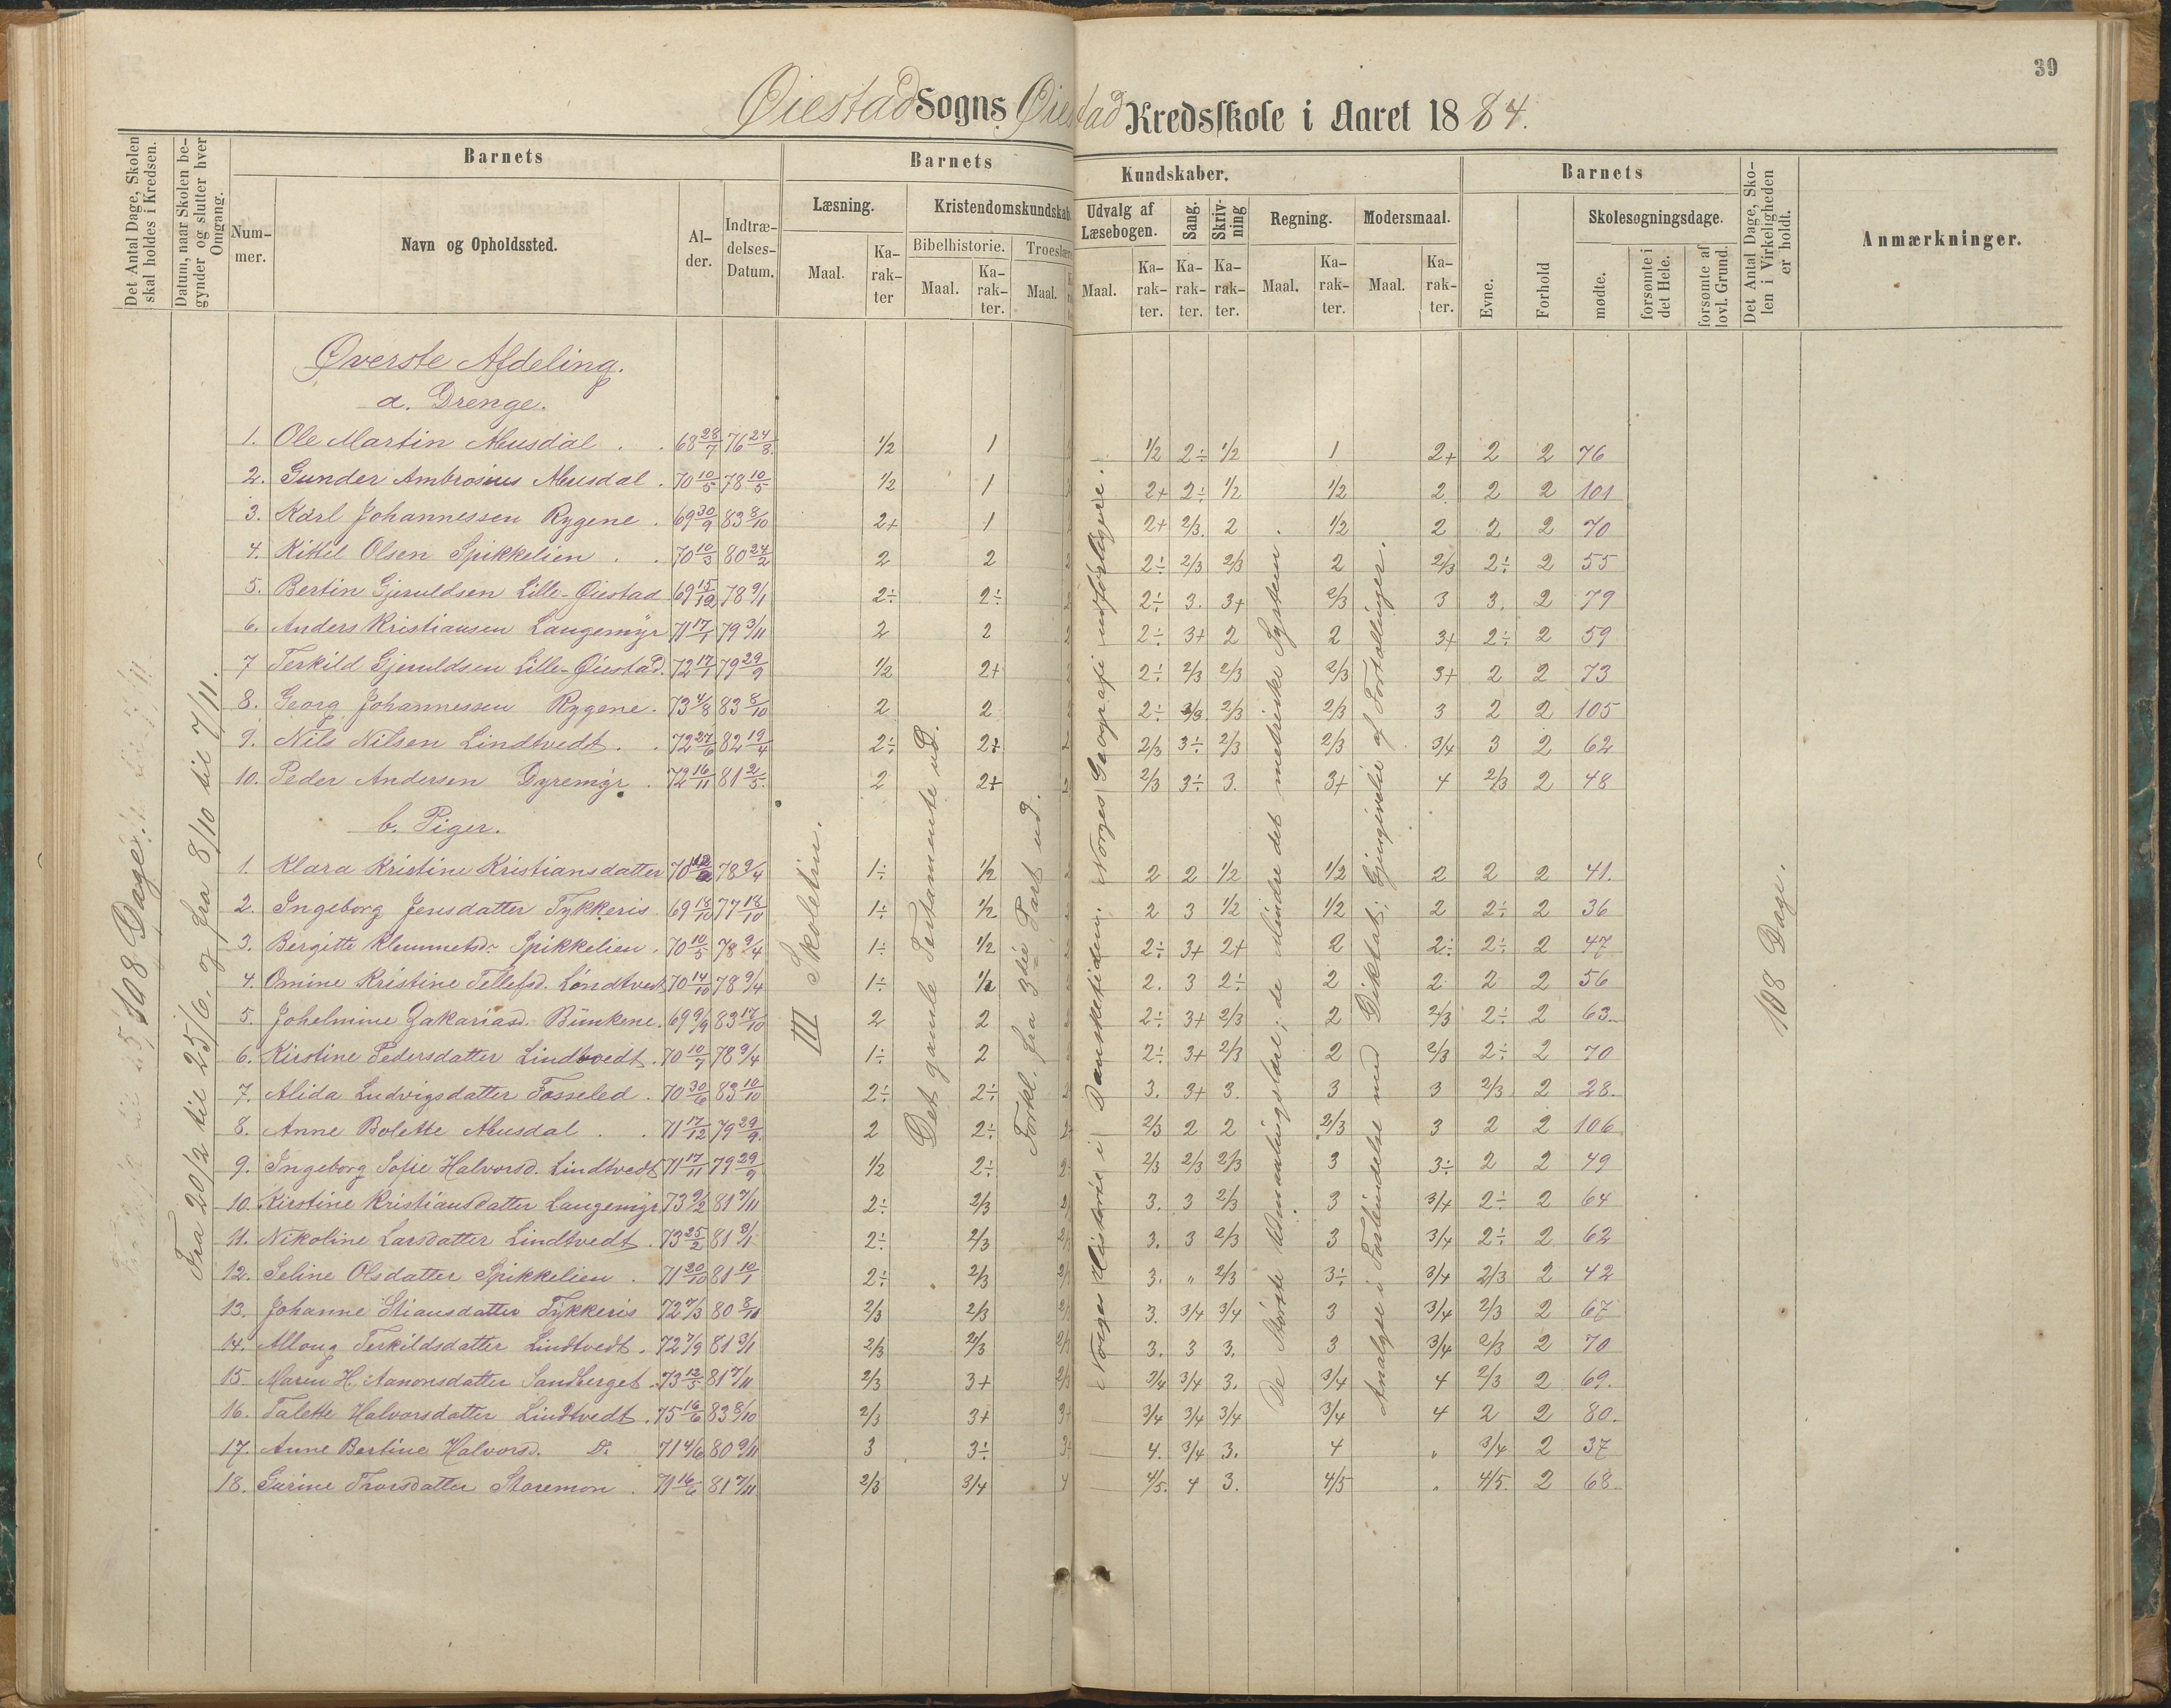 39
Øiestad Sogns Øiestad Kredsskole i Aaret 1884.
Det Antal Dage, Skolen skal holdes i Kredsen.
Datum, naar Skolen begynder og slutter hver Omgang.
Barnets
Nummer.
Navn og Opholdssted.
Alder.
Indtrædelses-Datum.
Barnets Kundskaber.
Læsning.
Maal.
Karakter
Kristendomskundskab
Bibelhistorie.
Maal.
Karakter.
Troeslære
Maal.
Udvalg af Læsebogen.
Maal.
Karakter.
Sang.
Karakter.
Skrivning
Karakter.
Regning.
Maal.
Karakter.
Modersmaal.
Maal.
Karakter.
Barnets
Evne.
Forhold
Skolesøgningsdage.
mødte.
forsømte i det Hele.
forsømte af lovl. Grund.
Det Antal Dage, Skolen i Virkeligheden er holdt.
Anmærkninger.
108 Dage.
Fra 20/2 til 25/6 og fra 8/10 til 7/11.
III Skoletrin.
Det gamle Testamente ud.
Forkl. fra 3die Part ud.
Norges Historie i Dansketiden. Norges Geografi udførligere.
De større Udmaalingstal; de mindre det metriske System.
Analyse i Forbindelse med Diktat; Gjengivelse af Fortællinger.
108 Dage.
Øverste Afdeling.
a. Drenge.
1. Ole Martin Musdal . . 68 28/7 76 24/8 1/2 1 1/2 2÷ 1/2 1 2+ 2 2 76
2. Gunder Ambrosius Musdal . 70 10/5 78 10/5 1/2 1 2+ 2÷ 1/2 1/2 2 2 2 101
3. Karl Johannessen Rygene . 69 30/9 83 8/10 2+ 1 2+ 2/3 2 1/2 2 2 2 70
4. Kittil Olsen Spikkelien . . 70 10/3 80 24/2 2 2 2÷ 2/3 2/3 2 2/3 2÷ 2 55
5. Bertin Gjeruldsen Lille-Øiestad 69 15/12 78 9/1 2÷ 2÷ 2÷ 3. 3+ 2/3 3 3. 2 79
6. Anders Kristiansen Langemyr 71 17/1 79 3/11 2 2 2÷ 3+ 2 2 3+ 2÷ 2 59
7 Terkild Gjeruldsen Lille-Øiestad. 72 17/1 79 29/9 1/2 2+ 2÷ 2/3 2/3 2/3 3+ 2 2 73
8. Georg Johannessen Rygene. 73 4/8 83 8/10 2 2 2÷ 2/3 2/3 2/3 3 2 2 105
9. Nils Nilsen Lindtvedt . . 72 27/6 82 19/4 2÷ 2+ 2/3 3÷ 2/3 2/3 3/4 3 2 62
10. Peder Andersen Dyremyr . 72 16/11 81 2/5. 2 2+ 2/3 3÷ 3. 3+ 4 2/3 2 48
b. Piger.
1. Klara Kristine Kristiansdatter 70 78 9/4 1÷ 1/2 2 2 1/2 1/2 2 2 2 41.
2. Ingeborg Jensdatter Tykkeris 69 18/10 77 18/10 1÷ 1/2 2 3 1/2 1/2 2 2÷ 2 36
3. Bergitte Klemmetsdr. Spikkelien . 70 10/5 78 9/4 1÷ 1/2 2÷ 3+ 2+ 2 2÷ 2÷ 2 47
4. Omine Kristine Tellefsd. Lindtvedt 70 14/10 78 9/4 1÷ 1/2 2. 3 2÷ 2 2 2 2 56
5. Johelmine Zakariasd. Bunkene. 69 9/9 83 17/10 2 2 2÷ 3+ 2/3 2 2/3 2÷ 2 63.
6. Kirstine Pedersdatter Lindtvedt . 70 10/7 78 9/4 1÷ 2 2÷ 3+ 2/3 2 2/3 2÷ 2 70
7. Alida Ludvigsdatter Fosseled . 70 30/6 83 10/10 2÷ 2÷ 3. 3+ 3. 3 3 2/3 2 28.
8. Anne Bolette Musdal . . 71 17/12 79 29/9. 2 2÷ 2/3 2 2 2/3 3 2 2 106
9. Ingeborg Sofie Halvorsd. Lindtvedt 71 17/11 79 29/9 1/2 2÷ 2/3 2/3 2/3 3 3÷ 2 2 49
10. Kirstine Kristiansdatter Langemyr 73 9/2 81 7/11 2÷ 2/3 3. 3 2/3 3 3/4 2÷ 2 64
11. Nikoline Larsdatter Lindtvedt . 73 25/2 81 3/1 2÷ 2/3 3. 3 2/3 3 3/4 2÷ 2 62
12. Seline Olsdatter Spikkelien . 71 20/10 81 10/1 2÷ 2/3 3. " 2/3 3÷ 3/4 2/3 2 42
13. Johanne Stiansdatter Tykkeris 72 7/3 80 8/11 2/3 2/3 3. 3/4 3/4 3 3/4 2/3 2 67
14. Alloug Terkildsdatter Lindtvedt . 72 7/9 81 3/1 2/3 2/3 3. 3 3. 3 3/4 2/3 2 70
15 Maren H. Aanonsdatter Sandberget . 73 12/5 81 7/11 2/3 3+ 3/4 3/4 3. 3/4 4 2/3 2 69.
16. Talette Halvorsdatter Lindtvedt . 75 16/6 83 8/10 2/3 3+ 3/4 3/4 3/4 3/4 4 2 2 80.
17. Anne Bertine Halvorsd. Do 71 4/6 80 9/11 3 3÷ 4. 3/4 3. 4 " 3/4 2 37
18. Gurine Thorsdatter Storemon . 71 16/6 81 7/11 2/3 3/4 4/5. 4 3. 4/5 " 4/5. 2 68